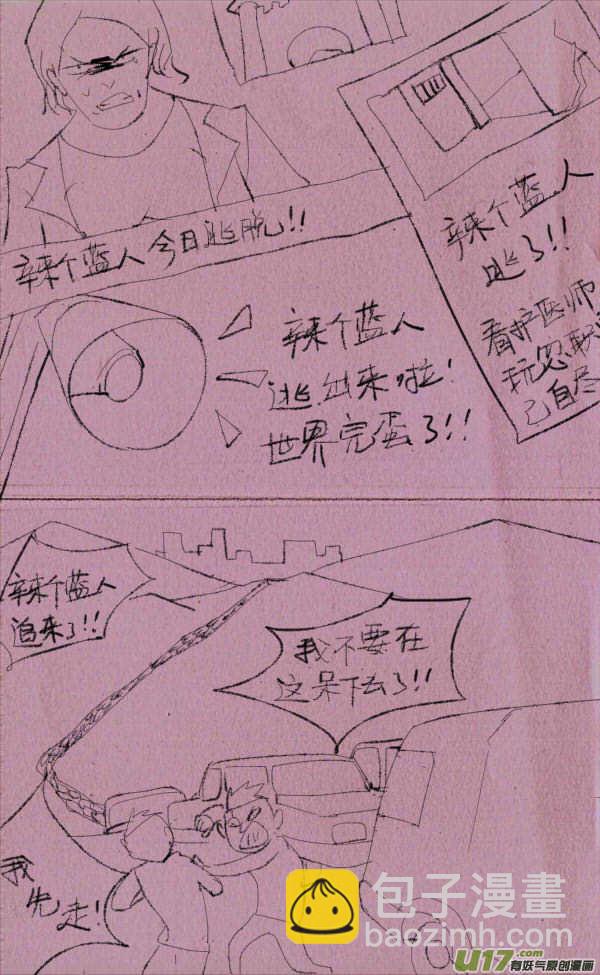 辣个蓝人今日逃脱!!
辣个蓝人
逃了!!
看护医师
玩忽职
己自尽
辣个蓝人
逃出来啦!
世界完蛋了!!
辣个蓝人
追来了!!
我不要在
这呆下去了!!
我
先
走!
包子漫畫
baozimh.com
U17.com
有妖气原创漫画